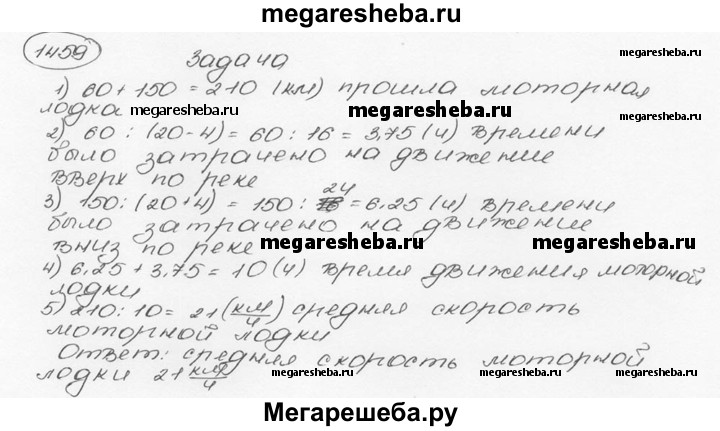 megaresheba.ru
1459
Задача
megaresheba.ru
1) 60 + 150 = 210 (км) прошла моторная
лодка megaresheba.ru megaresheba.ru megaresheba.ru
2) 60 : (20-4) = 60 : 16 = 3,75 (ч) времени
было затрачено на движение
вверх по реке
24
3) 150 : (20+4) = 150 : = 6.25 (ч) времени
было затрачено на движение
вниз по реке megaresheba.ru megaresheba.ru
4) 6,25 + 3,75 = 10 (ч) время движения моторной
лодки
5) 210 : 10 = 21 (км/ч) средняя скорость
моторной лодки
Ответ: средняя скорость моторной
лодки 21 км/ч
megaresheba.ru
Мегарешеба.ру